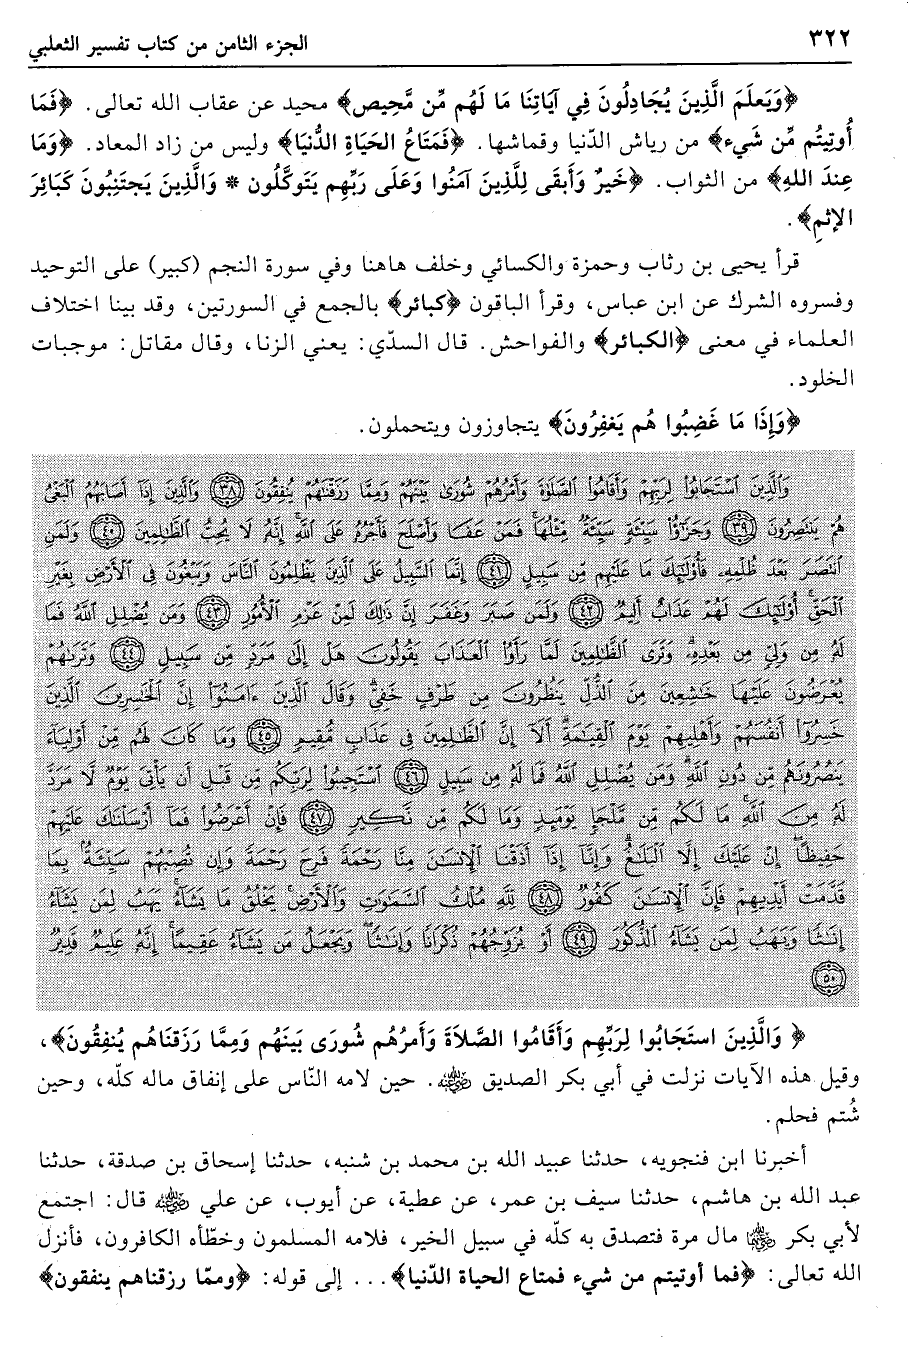 ٣٢٢
الجزء الثامن من كتاب تفسير الثعلبي
﴿وَيَعلَمَ الَّذِينَ يُجَادِلُونَ فِي آيَاتِنَا مَا لَهُم مِّن مَّحِيص﴾ محيد عن عقاب الله تعالى. ﴿فَمَا
أُوتِيتُم مِّن شَيء﴾ من رياش الدّنيا وقماشها. ﴿فَمَتَاعُ الحَيَاةِ الدُّنيَا﴾ وليس من زاد المعاد. ﴿وَمَا
عِندَ اللهِ﴾ من الثواب. ﴿خَيرٌ وَأَبقَى لِلَّذِينَ آمَنُوا وَعَلَى رَبِّهِم يَتَوَكَّلُون * وَالَّذِينَ يَجتَنِبُونَ كَبَائِرَ
الإِثمِ﴾.
قرأ يحيى بن رثاب وحمزة والكسائي وخلف هاهنا وفي سورة النجم (كبير) على التوحيد
وفسروه الشرك عن ابن عباس، وقرأ الباقون ﴿كبائر﴾ بالجمع في السورتين، وقد بينا اختلاف
العلماء في معنى ﴿الكبائر﴾ والفواحش. قال السدّي: يعني الزنا، وقال مقاتل: موجبات
الخلود.
﴿وَإِذَا مَا غَضِبُوا هُم يَغفِرُونَ﴾ يتجاوزون ويتحملون.
وَالَّذِينَ ٱسْتَجَابُوا۟ لِرَبِّهِمْ وَأَقَامُوا۟ ٱلصَّلَوٰةَ وَأَمْرُهُمْ شُورَىٰ بَيْنَهُمْ وَمِمَّا رَزَقْنَٰهُمْ يُنفِقُونَ ٣٨ وَٱلَّذِينَ إِذَآ أَصَابَهُمُ ٱلْبَغْىُ
هُمْ يَنتَصِرُونَ ٣٩ وَجَزَٰٓؤُا۟ سَيِّئَةٍ سَيِّئَةٌ مِّثْلُهَا فَمَنْ عَفَا وَأَصْلَحَ فَأَجْرُهُۥ عَلَى ٱللَّهِ إِنَّهُۥ لَا يُحِبُّ ٱلظَّٰلِمِينَ ٤٠ وَلَمَنِ
ٱنتَصَرَ بَعْدَ ظُلْمِهِۦ فَأُو۟لَٰٓئِكَ مَا عَلَيْهِم مِّن سَبِيلٍ ٤١ إِنَّمَا ٱلسَّبِيلُ عَلَى ٱلَّذِينَ يَظْلِمُونَ ٱلنَّاسَ وَيَبْغُونَ فِى ٱلْأَرْضِ بِغَيْرِ
ٱلْحَقِّ أُو۟لَٰٓئِكَ لَهُمْ عَذَابٌ أَلِيمٌ ٤٢ وَلَمَن صَبَرَ وَغَفَرَ إِنَّ ذَٰلِكَ لَمِنْ عَزْمِ ٱلْأُمُورِ ٤٣ وَمَن يُضْلِلِ ٱللَّهُ فَمَا
لَهُۥ مِن وَلِىٍّ مِّنۢ بَعْدِهِۦ وَتَرَى ٱلظَّٰلِمِينَ لَمَّا رَأَوُا۟ ٱلْعَذَابَ يَقُولُونَ هَلْ إِلَىٰ مَرَدٍّ مِّن سَبِيلٍ ٤٤ وَتَرَىٰهُمْ
يُعْرَضُونَ عَلَيْهَا خَٰشِعِينَ مِنَ ٱلذُّلِّ يَنظُرُونَ مِن طَرْفٍ خَفِىٍّ وَقَالَ ٱلَّذِينَ ءَامَنُوٓا۟ إِنَّ ٱلْخَٰسِرِينَ ٱلَّذِينَ
خَسِرُوٓا۟ أَنفُسَهُمْ وَأَهْلِيهِمْ يَوْمَ ٱلْقِيَٰمَةِ أَلَآ إِنَّ ٱلظَّٰلِمِينَ فِى عَذَابٍ مُّقِيمٍ ٤٥ وَمَا كَانَ لَهُم مِّنْ أَوْلِيَآءَ
يَنصُرُونَهُم مِّن دُونِ ٱللَّهِ وَمَن يُضْلِلِ ٱللَّهُ فَمَا لَهُۥ مِن سَبِيلٍ ٤٦ ٱسْتَجِيبُوا۟ لِرَبِّكُم مِّن قَبْلِ أَن يَأْتِىَ يَوْمٌ لَّا مَرَدَّ
لَهُۥ مِنَ ٱللَّهِ مَا لَكُم مِّن مَّلْجَإٍ يَوْمَئِذٍ وَمَا لَكُم مِّن نَّكِيرٍ ٤٧ فَإِنْ أَعْرَضُوا۟ فَمَآ أَرْسَلْنَٰكَ عَلَيْهِمْ
حَفِيظًا إِنْ عَلَيْكَ إِلَّا ٱلْبَلَٰغُ وَإِنَّآ إِذَآ أَذَقْنَا ٱلْإِنسَٰنَ مِنَّا رَحْمَةً فَرِحَ بِهَا وَإِن تُصِبْهُمْ سَيِّئَةٌۢ بِمَا
قَدَّمَتْ أَيْدِيهِمْ فَإِنَّ ٱلْإِنسَٰنَ كَفُورٌ ٤٨ لِّلَّهِ مُلْكُ ٱلسَّمَٰوَٰتِ وَٱلْأَرْضِ يَخْلُقُ مَا يَشَآءُ يَهَبُ لِمَن يَشَآءُ
إِنَٰثًا وَيَهَبُ لِمَن يَشَآءُ ٱلذُّكُورَ ٤٩ أَوْ يُزَوِّجُهُمْ ذُكْرَانًا وَإِنَٰثًا وَيَجْعَلُ مَن يَشَآءُ عَقِيمًا إِنَّهُۥ عَلِيمٌ قَدِيرٌ
٥٠
﴿وَالَّذِينَ استَجَابُوا لِرَبِّهِم وَأَقَامُوا الصَّلَاةَ وَأَمرُهُم شُورَى بَينَهُم وَمِمَّا رَزَقنَاهُم يُنفِقُونَ﴾،
وقيل هذه الآيات نزلت في أبي بكر الصديق ﷺ. حين لامه النّاس على إنفاق ماله كلّه، وحين
شُتم فحلم.
أخبرنا ابن فنجويه، حدثنا عبيد الله بن محمد بن شنبه، حدثنا إسحاق بن صدقة، حدثنا
عبد الله بن هاشم، حدثنا سيف بن عمر، عن عطية، عن أيوب، عن علي ﷺ قال: اجتمع
لأبي بكر ﷺ مال مرة فتصدق به كلّه في سبيل الخير، فلامه المسلمون وخطّأه الكافرون، فأنزل
الله تعالى: ﴿فما أوتيتم من شيء فمتاع الحياة الدّنيا﴾... إلى قوله: ﴿وممّا رزقناهم ينفقون﴾